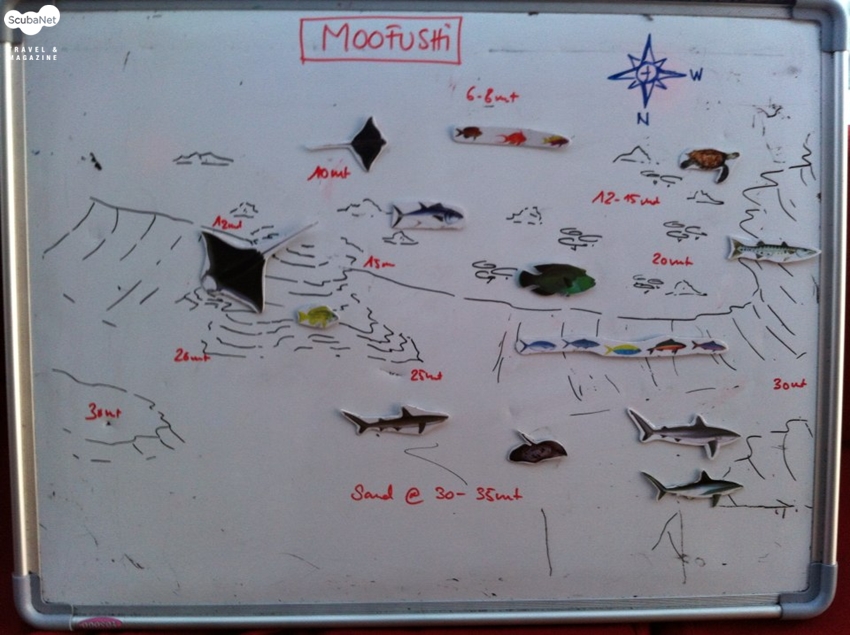 ScubaNet
TRAVEL &
MAGAZINE
MOOFUSHi
W
N
6-8mt
10mt
12-15mt
12mt
15m
20mt
26mt
25mt
30mt
30mt
Sand @ 30-35mt